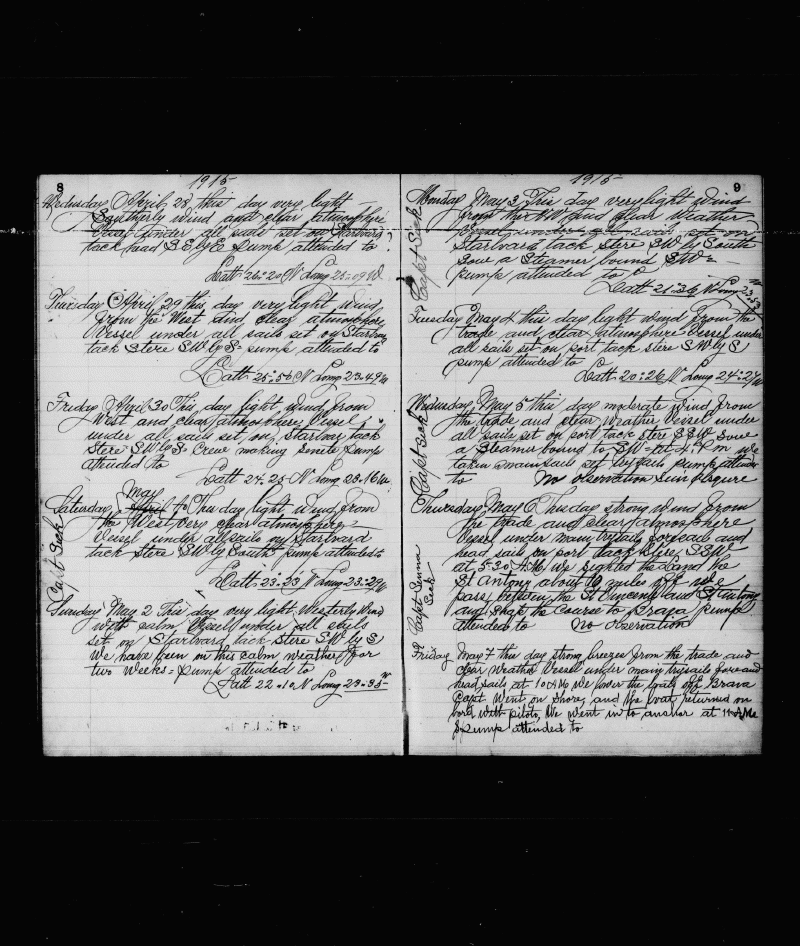 8
1915
Wednesday April 28 this day very light
Southerly wind and clear atmosphere
Vessel under all sails set on Startvard
tack head S.E by E pump attended to
Latt 26-20 N Long 25-09 W
Thursday April 29 this day very light wind
from the West and clear atmosphere
Vessel under all sails set on Startvard
tack stere S W ly S pump attended to
Latt-25-56 N Long 23-49 W
Friday April 30 This day light wind from
West and clear atmosphere Vessel
under all sails set on Startvard tack
stere S W ly S Crew making pump
attended to
Latt 24.25 N Long 23.16 W
May
Saturday April 1 This day light wind from
the West very clear atmosphere
Vessel under all sails on Startvard
tack stere S W ly South pump attended to
Latt-23-23 N Long 23-29 W
Capt Sick
Sunday May 2 This day very light Westerly Wind
with calm Vessel under all sails
set on Startvard tack stere S W ly S
We have been in this calm weather for
two weeks = pump attended to
Latt 22.10 N Long 23-35 W
9
1915
Capt Sick
Monday May 3 This day very light wind
from the N W and clear weather
Vessel under all sails set on
Startvard tack stere S W ly South
Sove a Steamer bound S W
pump attended to
Latt 21-36 N Long 23-53 W
Tuesday May 4 this day light wind from the
trade and clear atmosphere Vessel under
all sails set on port tack stere S W ly S
pump attended to
Latt-20:26 N Long 24:27 W
Capt Sick
Wednesday May 5 this day moderate wind from
the trade and clear weather Vessel under
all sails set on port tack stere S S W sove
a steamer bound to S W at 4 P m we
taken mainsail set trysails pump attended
to No observation Sun
Thursday May 6 This day strong wind from
the trade and clear atmosphere
Vessel under main trysails foresail and
head sails on port tack stere S S W
at 5-30 A.M. We sighted the land the
St Antony about 10 miles off we
pass between the St Vincent and St Antony
and shape the Course to Brava pump
attended to No observation
Capt Senna
Sick
Friday May 7 this day strong breezes from the trade and
clear weather Vessel under main trysails fore and
head sails at 10 A Mo we lower the boats off Brava
Capt Went on Shore and the boat returned on
bord with pilots. We went in to anchor at 11 A Mo
pump attended to